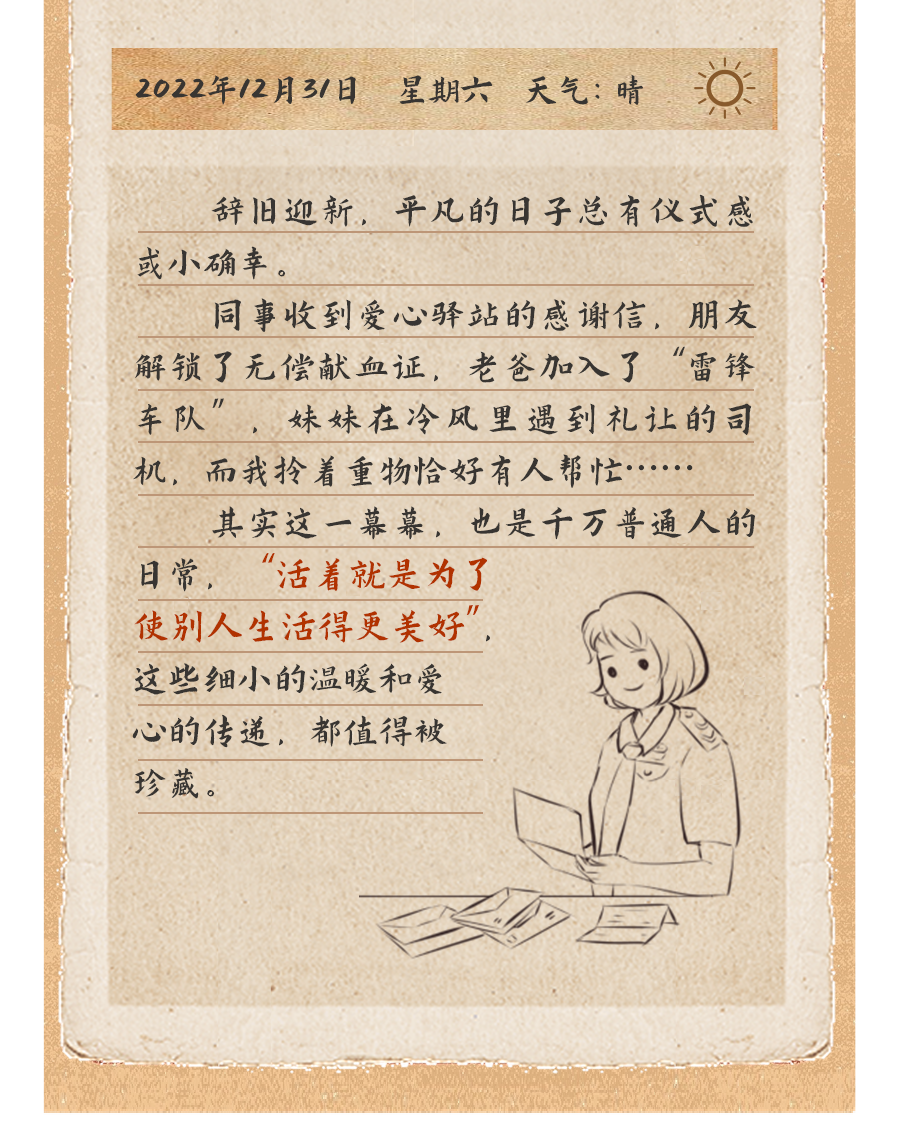 2022年12月31日 星期六 天气：晴
辞旧迎新，平凡的日子总有仪式感
或小确幸。
同事收到爱心驿站的感谢信，朋友
解锁了无偿献血证，老爸加入了“雷锋
车队”，妹妹在冷风里遇到礼让的司
机，而我拎着重物恰好有人帮忙……
其实这一幕幕，也是千万普通人的
日常，“活着就是为了
使别人生活得更美好”，
这些细小的温暖和爱
心的传递，都值得被
珍藏。